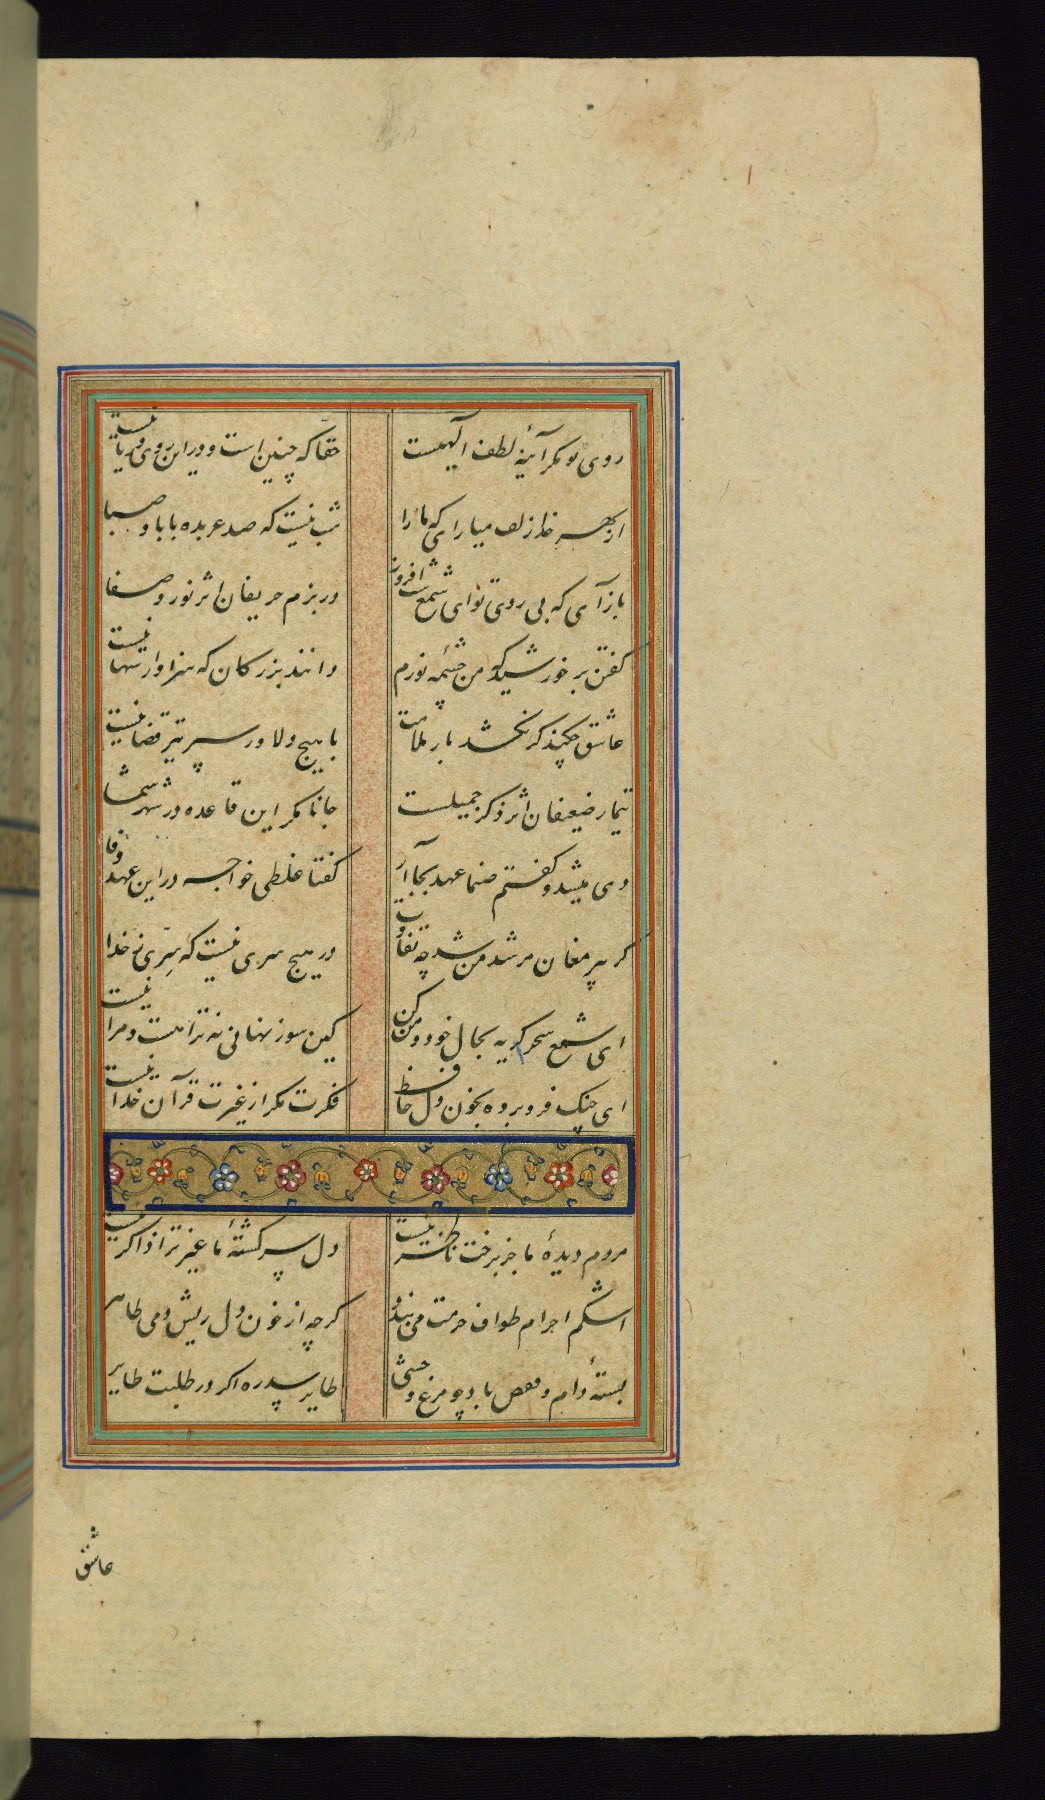 روی تو مکر آئینهٔ لطف الهیست حقا که چنین است و درین روی و ریا نیست
از بهر خدا زلف میارای که ما را شب نیست که صد عربده با باد صبا
باز آی که بی روی تو ای شمع دل افروز در بزم حریفان اثر نور و صفا
کفتن بر خورشید که من چشمه نورم دانند بزرکان که سزاوار سها نیست
عاشق چکند کر نکشد بار ملامت با هیچ دلاور سپر تیر قضا نیست
تیمار ضعیفان اثر ذکر جمیلست جانا مکر این قاعده در شهر شما
دی میشد و کفتم صنما عهد بجا آر کفتا غلطی خواجه در این عهد وفا
کر پیر مغان مرشد من شد چه تفاوت در هیچ سری نیست که سری ز خدا
ای شمع سحر کریه بحال خود و من کن کین سوز نهانی نه ترا هست و مرا نیست
ای چنک فرو برده بخون دل حافظ فکرت مکر از غیرت قرآن خدا نیست
مردم دیدهٔ ما جز برخت ناظر نیست دل سرکشتهٔ ما غیر ترا ذاکر نیست
اشکم احرام طواف حرمت می بندد کرچه از خون دل ریش دمی طاهر
بستهٔ دام و قفص باد چو مرغ وحشی طایر سدره اکر در طلبت طایر
عاشق